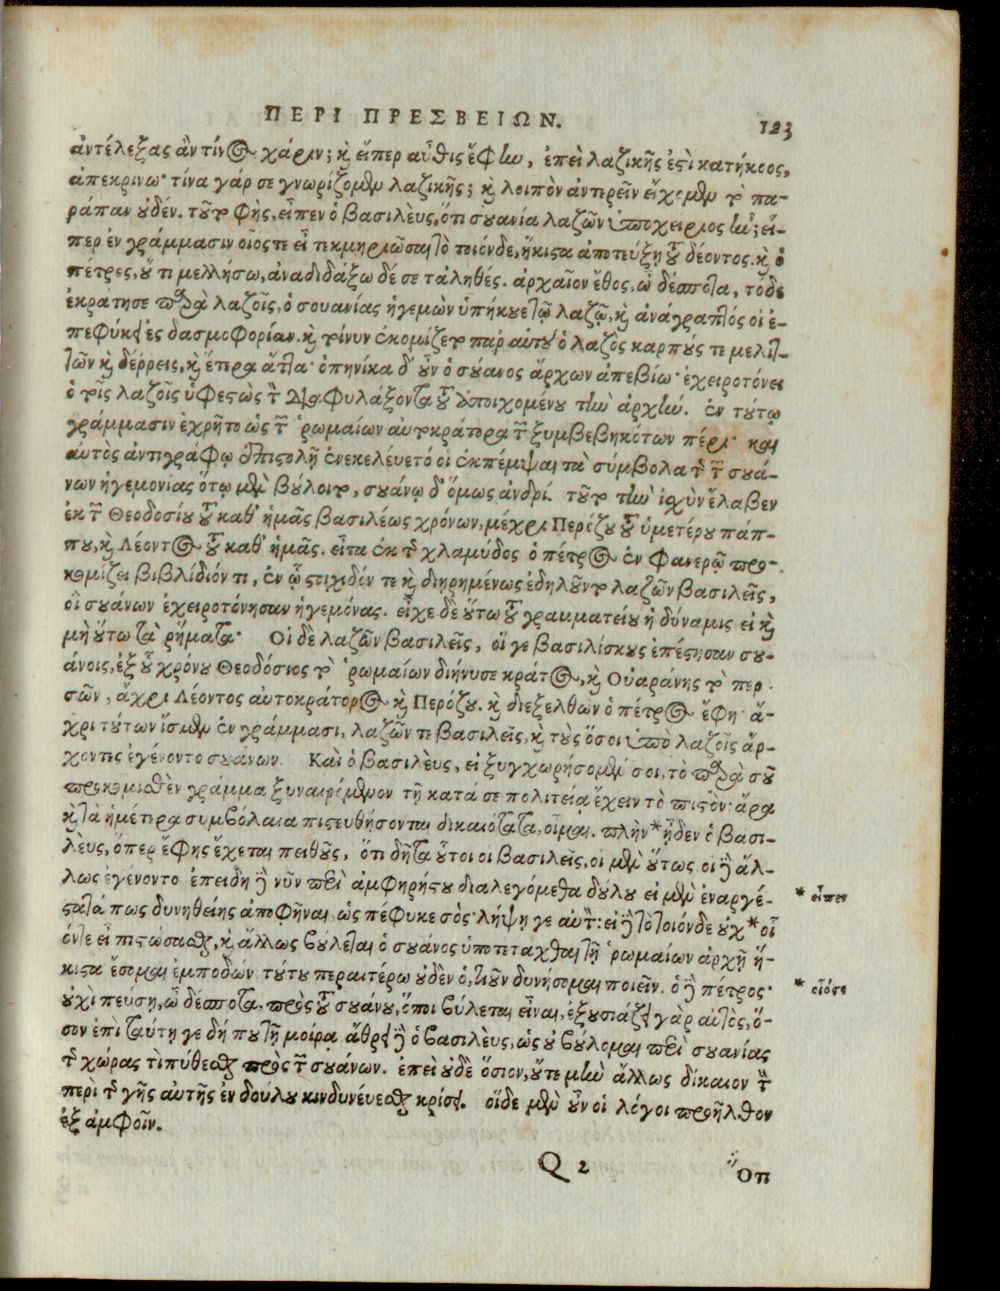 ΠΕΡΙ ΠΡΕΣΒΕΙΩΝ. 123
ἀντέλεξας ἂν τίνος χάριν; καὶ εἴπερ αὖθις ἔφην, ἐπεὶ λαζικῆς ἐστὶ κατήκοος,
ἀπεκρίνω· τίνα γάρ σε γνωρίζομεν λαζικῆς; καὶ λοιπὸν ἀντιρεῖν εἴχομεν το πα-
ράπαν οὐδέν. τοῦτο φὴς, εἶπεν ὁ βασιλεὺς, ὅτι σουανία λαζῶν ὑποχείριος ἦν; εἴ-
περ ἐν γράμμασιν οἷός τε εἶ τεκμηριῶσαι τὸ τοιόνδε, ἥκιστα ἀποτεύξῃ τοῦ δέοντος. καὶ ὁ
πέτρος, οὔ τι μελλήσω, ἀναδιδάξω δέ σε τἀληθές. ἀρχαῖον ἔθος, ὦ δέσποτα, τόδε
ἐκράτησε παρὰ λαζοῖς, ὁ σουανίας ἡγεμὼν ὑπήκουε τῷ λαζῷ, καὶ ἀνάγραπτός οἱ ἐ-
πεφύκει ἐς δασμοφορίαν. καὶ τοίνυν ἐκομίζετο παρ αὐτοῦ ὁ λαζὸς καρπούς τε μελιτ-
τῶν καὶ δέρρεις, καὶ ἕτερα ἄττα· ὁπηνίκα δ' οὖν ὁ σούανος ἄρχων ἀπεβίω· ἐχειροτόνει
ὁ τοῖς λαζοῖς ὑφεστὼς τὸν διαφυλάξοντα τοῦ ἀποιχομένου τὴν ἀρχήν. ἐν τούτῳ
γράμμασιν ἐχρῆτο ὡς τὸν ῥωμαίων αὐτοκράτορα τῶν ξυμβεβηκότων πέρι· καὶ
αὐτὸς ἀντιγράφῳ ἐπιστολῇ ἐνεκελεύετό οἱ ἐκπέμψαι τὰ σύμβολα τῆς τῶν σουά-
νων ἡγεμονίας ὅτῳ μὲν βούλοιτο, σουάνῳ δ' ὅμως ἀνδρί. τοῦτο τὴν ἰσχὺν ἔλαβεν
ἐκ τῶν Θεοδοσίου τοῦ καθ' ἡμᾶς βασιλέως χρόνων, μέχρι Περόζου τοῦ ὑμετέρου πάπ-
που, καὶ Λέοντος τοῦ καθ' ἡμᾶς. εἶτα ἐκ τῆς χλαμύδος ὁ πέτρος ἐν φανερῷ προ-
κομίζει βιβλίδιόν τι, ἐν ᾧ στιχιδέν τε καὶ διηρημένως ἐδηλοῦντο λαζῶν βασιλεῖς,
οἳ σουάνων ἐχειροτόνησαν ἡγεμόνας. εἶχε δὲ οὕτω τοῦ γραμματείου ἡ δύναμις εἰ καὶ
μὴ οὕτω τὰ ῥήματα· Οἱ δὲ λαζῶν βασιλεῖς, οἵ γε βασιλίσκους ἐπέστησαν σου-
άνοις, ἐξ οὗ χρόνου Θεοδόσιος τὸ ῥωμαίων διήνυσε κράτος, καὶ Οὐαράνης τὸ περ
σῶν, ἄχρι Λέοντος αὐτοκράτορος καὶ Περόζου. καὶ διεξελθὼν ὁ πέτρος ἔφη· ἄ-
χρι τούτων ἴσμεν ἐν γράμμασι, λαζῶν τε βασιλεῖς, καὶ τοὺς ὅσοι ὑπὸ λαζοῖς ἄρ-
χοντες ἐγένοντο σουάνων. Καὶ ὁ βασιλεὺς, εἰ ξυγχωρήσομέν σοι, τὸ παρὰ σοῦ
προκομισθὲν γράμμα ξυναιρόμενον τῇ κατά σε πολιτείᾳ ἔχειν τὸ πιστὸν· ἄρα
καὶ τὰ ἡμέτερα συμβόλαια πιστευθήσονται δικαιότατα, οἶμαι. πλὴν * ᾖδεν ὁ βασι-
λεὺς, ὅπερ ἔφης ἔχεται πειθοῦς, ὅτι δῆτα οὗτοι οἱ βασιλεῖς, οἱ μὲν οὕτως οἱ δὲ ἄλ-
λως ἐγένοντο ἐπειδὴ δὲ νῦν περὶ ἀμφηρίστου διαλεγόμεθα δούλου εἰ μὲν ἐναργέ- * εἶπεν
στατά πως δυνηθείης ἀποφῆναι, ὡς πέφυκε σὸς· λήψῃ γε αὐτόν: εἰ δὲ τὸ τοιόνδε οὐχ * οἷ
όντε εἶ πιστώσασθαι, καὶ ἄλλως βούλεται ὁ σουάνος ὑποτετάχθαι τῇ ῥωμαίων ἀρχῇ ἥ-
κιστα ἔσομαι ἐμποδών. τούτου περαιτέρω οὐδὲν ὁ,τιοῦν δυνήσομαι ποιεῖν. ὁ δὲ πέτρος· * οἷόστε
οὐχὶ πεύσῃ, ὦ δέσποτα, πρὸς τοῦ σουάνου, ὅποι βούλεται εἶναι, ἐξουσιάζει γὰρ αὐτὸς, ὅ-
σον ἐπὶ ταύτῃ γε δή που τῇ μοίρᾳ. ἄθρει δὲ ὁ βασιλεὺς, ὡς οὐ βούλομαι περὶ σουανίας
τῆς χώρας τὶ πύθεσθαι πρὸς τῶν σουάνων. ἐπεὶ οὐδὲ ὅσιον, οὔτε μὴν ἄλλως δίκαιον τὸν
περὶ τῆς γῆς αὐτῆς ἐν δούλου κινδυνεύεσθαι κρίσει. οἵδε μὲν οὖν οἱ λόγοι προῆλθον
ἐξ ἀμφοῖν.
Q 2 Ὅπ